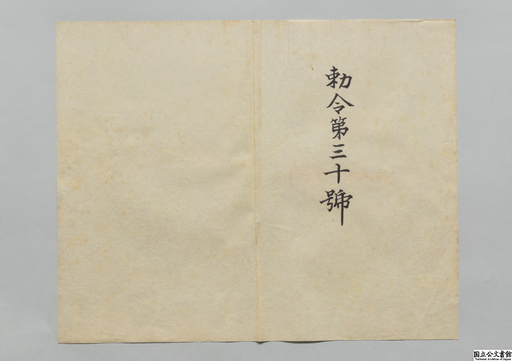 勅令第三十號
国立公文書館
National Archives of Japan